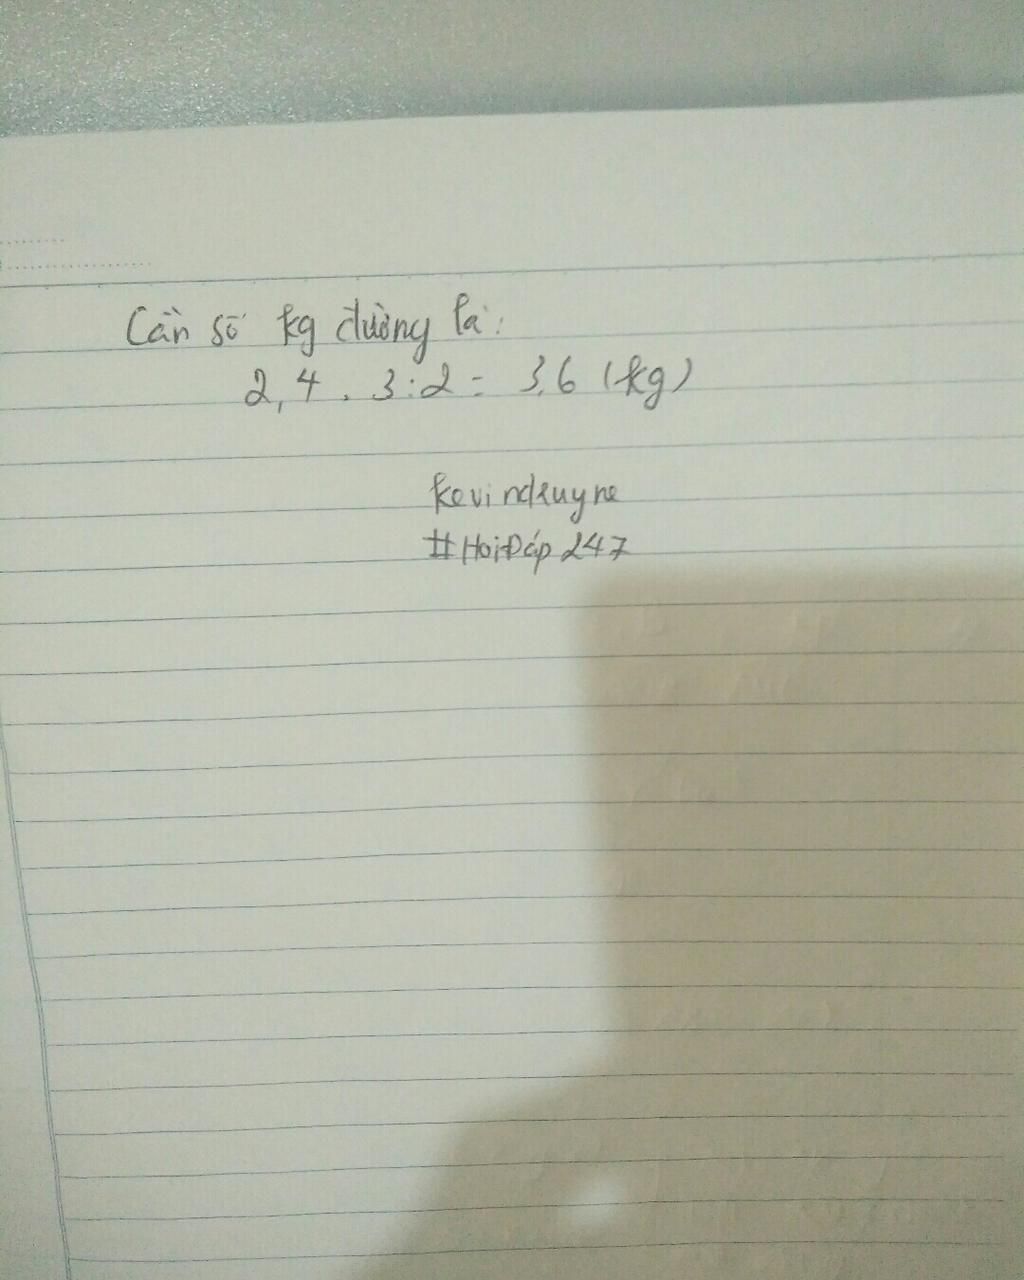 Cần số kg đường là:
2,4 . 3:2 = 3,6 (kg)
kevindzuyne
#HoiĐáp 247